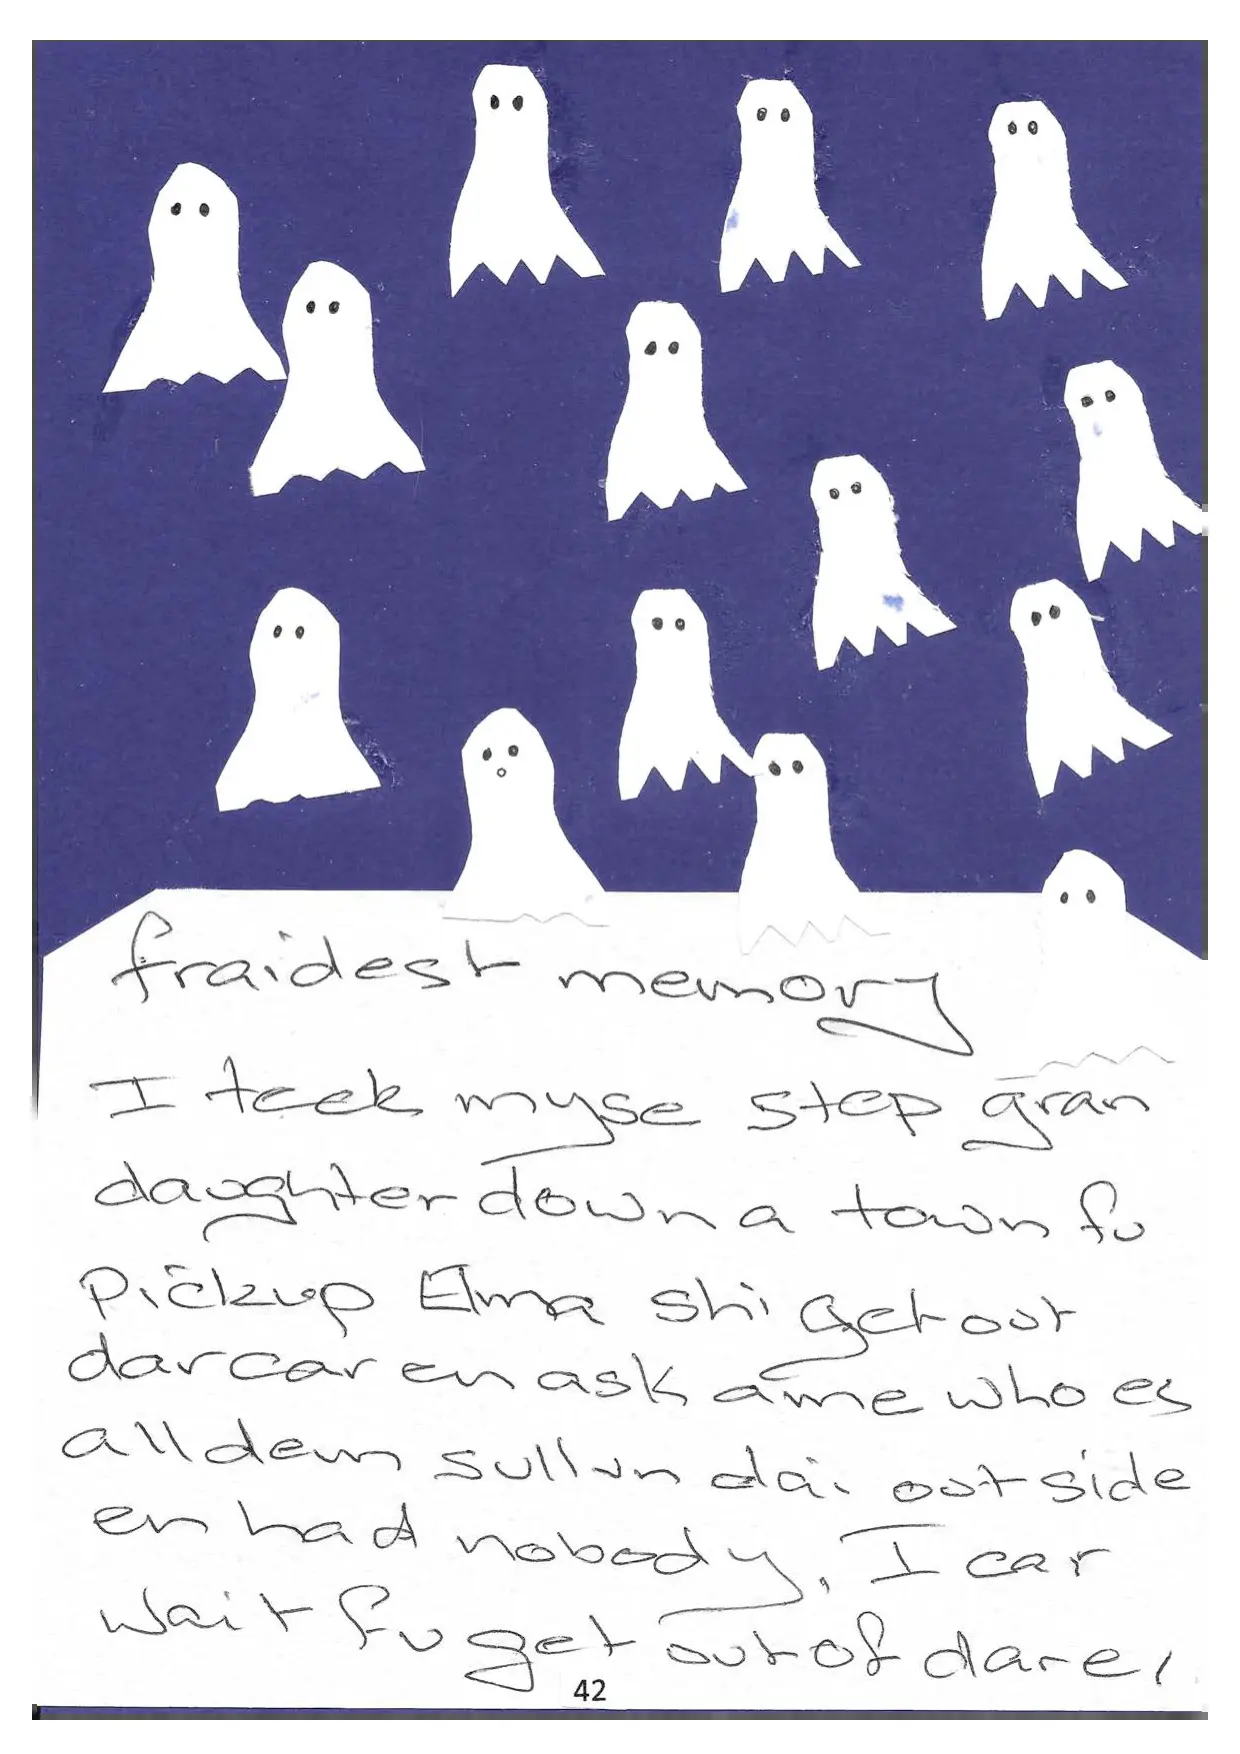 fraidest memory
I teek myse step gran
daughter down a town fu
Pickup Elma shi get out
dar car en ask ame who es
all dem sullun dai outside
en had nobody, I car
wait fu get out of dare,
42